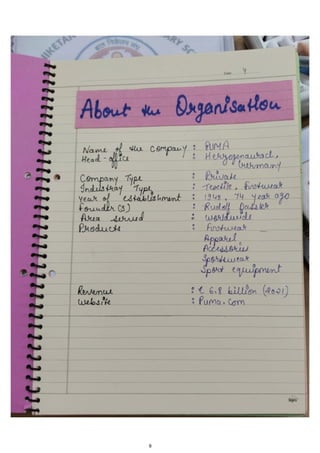 4
About the Organisation
Name of the company : PUMA
Head-office : Herzogenaurach, Germany
Company Type : Private
Industry Type : Textile, footwear
Year of establishment : 1948, 74 year ago
Founder(s) : Rudolf Dassler
Area served : worldwide
Products : Footwear
Apparel
Accessories
Sportswear
Sport equipment
Revenue : € 6.8 billion (2021)
Website : Puma.Com
9